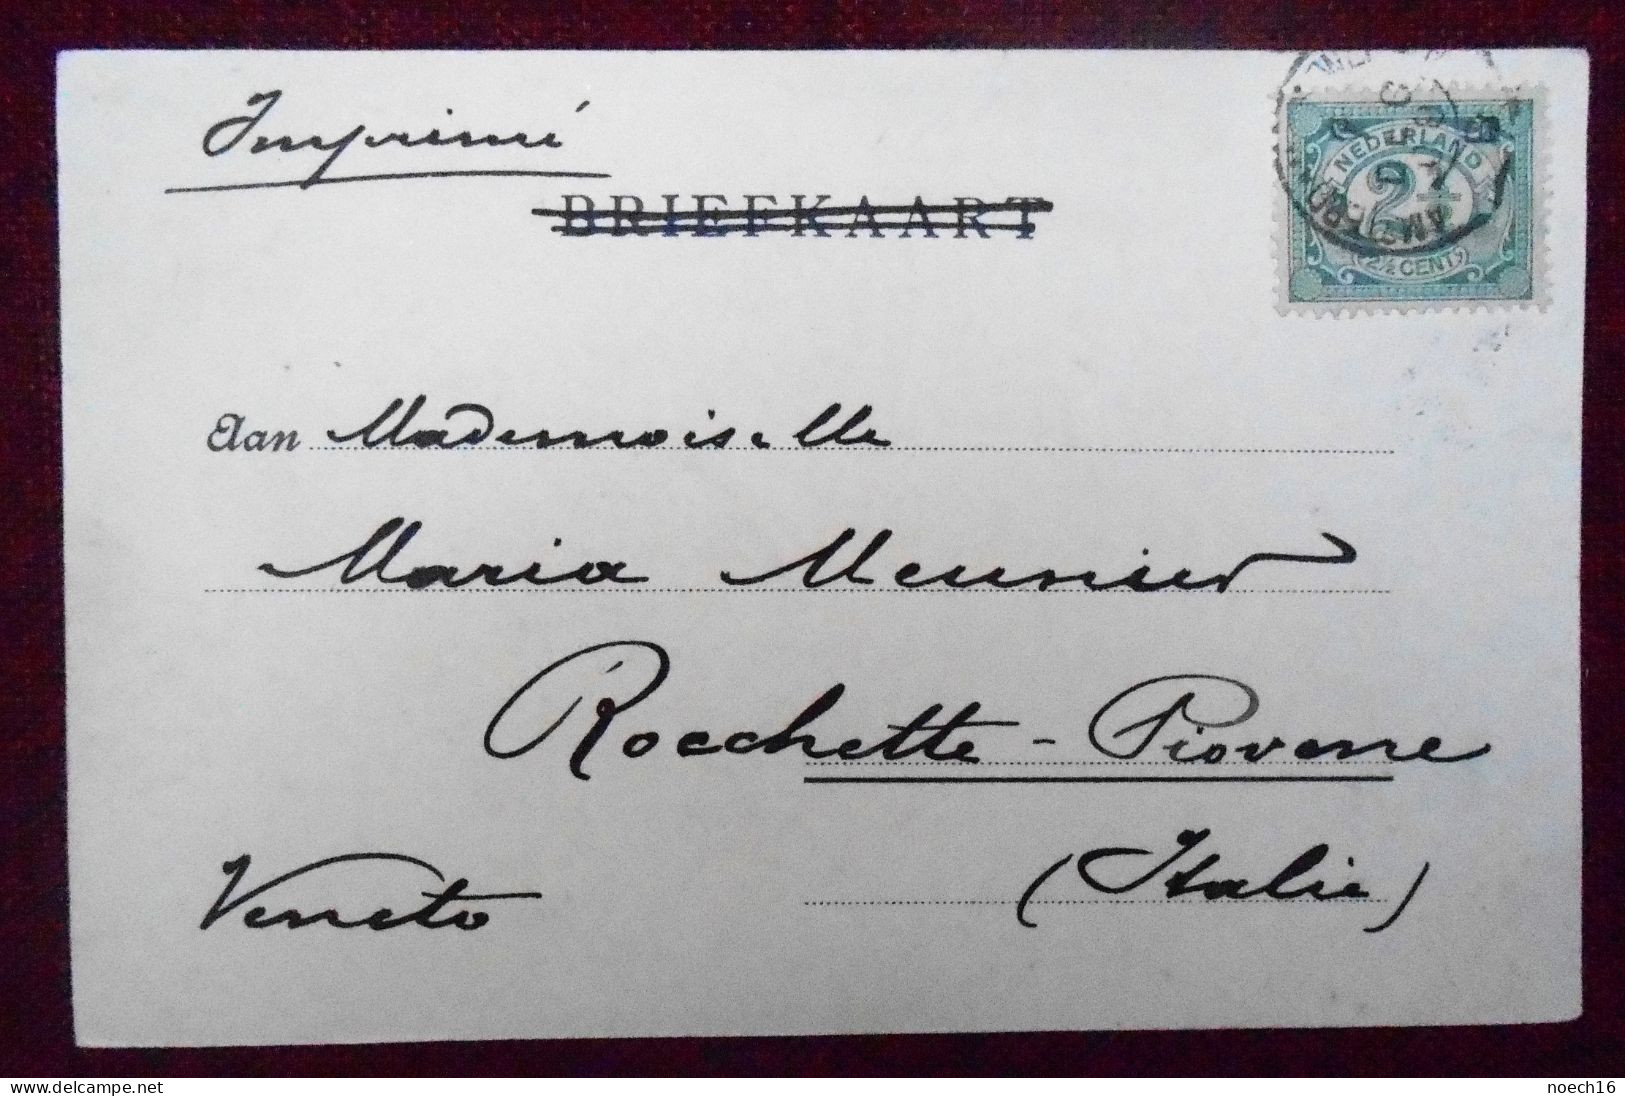 Imprimé
BRIEFKAART
NEDERLAND
2½
(2½ CENT)
Aan Mademoiselle
Maria Meunier
Rocchette - Piovene
(Italie)
Veneto
www.delcampe.net
noech16